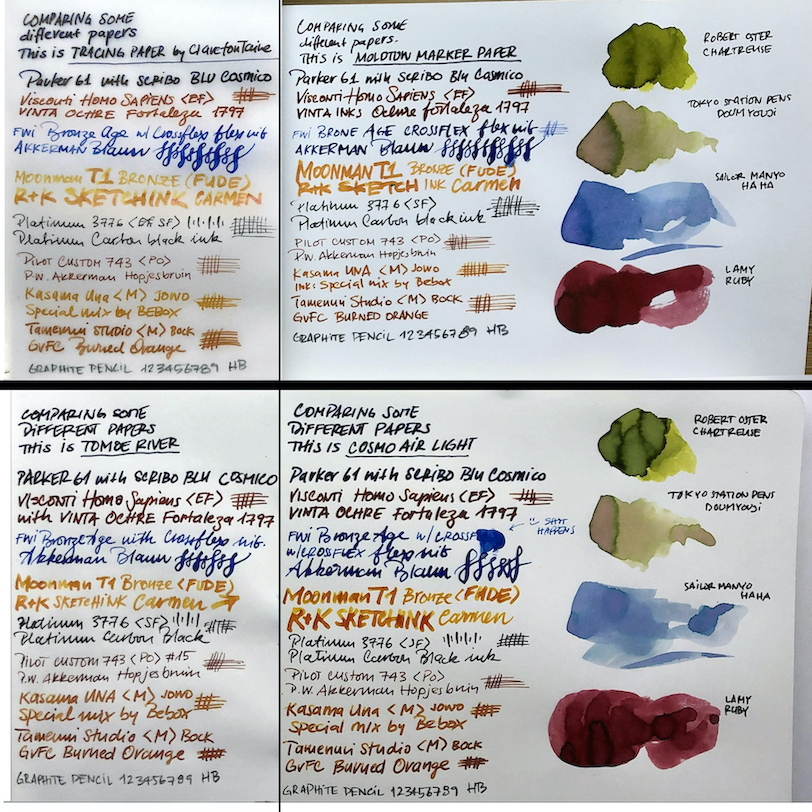 COMPARING SOME
different papers
This is TRACING PAPER by Clairefontaine
Parker 61 with SCRIBO BLU COSMICO
VISCONTI HOMO SAPIENS <EF>
VINTA OCHRE Fortaleza 1797
FWI Bronze Age w/ Crossflex flex nib
AKKERMAN Blauw
MOONMAN T1 BRONZE (FUDE)
R+K SKETCHINK CARMEN
Platinum 3776 SF>
Platinum Carbon black ink
PILOT CUSTOM 743 <PO>
P.W. Akkerman Hopjesbruin
Kasama Una <M> JOWO
Special mix by BEBOX
Tamenuri Studio <M> BOCK
GvFC Burned Orange
GRAPHITE PENCIL 123456789 HB
COMPARING SOME
different papers.
THIS IS MOLOTOW MARKER PAPER
Parker 61 with SCRIBO Blu Cosmico
VISCONTI Homo SAPIENS <EF>
VINTA INKS Ochre fortaleza 1797
FWI BRONE AGE CROSSFLEX flex nib
AKKERMAN Blauw
MOONMAN T1 BRONZE (FUDE)
R+K SKETCH INK Carmen
Platinum 3776 <SF>
Platinum Carbon black ink
PILOT CUSTOM 743 <PO>
P.W. Akkerman Hopjesbruin
Kasama UNA <M> JOWO
INK: Special mix by Bebox
Tamenuri Studio <M> BOCK
GvFC BURNED ORANGE
GRAPHITE PENCIL 123456789 HB
ROBERT OSTER
CHARTREUSE
TOKYO STATION PENS
DOUMYOUJI
SAILOR MANYO
HAHA
LAMY
RUBY
COMPARING SOME
DIFFERENT PAPERS
This is TOMOE RIVER
PARKER 61 with SCRIBO BLU COSMICO
VISCONTI Homo Sapiens <EF>
with VINTA OCHRE Fortaleza 1797
FWI Bronze Age with Crossflex nib.
Akkerman Blauw
Moonman T1 Bronze <FUDE)
R+K SKETCHINK Carmen
Platinum 3776 <SF>
Platinum Carbon Black
PILOT CUSTOM 743 <PO> #15
P.W. Akkerman Hopjesbruin
Kasama UNA <M> JOWO
Special mix by Bebox
Tamenuri Studio <M> BOCK
GvFC Burned Orange
GRAPHITE PENCIL 123456789 HB
COMPARING SOME
DIFFERENT PAPERS
THIS IS COSMO AIR LIGHT
Parker 61 with SCRIBO Blu Cosmico
VISCONTI Homo Sapiens <EF>
VINTA OCHRE Fortaleza 1797
FWI Bronze Age w/ CROSSF
SHIT
HAPPENS
w/CROSSFLEX flex nib
Akkerman Blauw
MOONMAN T1 BRONZE (FUDE)
R+K SKETCHINK Carmen
Platinum 3776 <SF>
Platinum Carbon Black ink
PILOT CUSTOM 743 <PO>
P.W. Akkerman Hopjesbruin
Kasama Una <M> JOWO
Special mix by Bebox
Tamenuri Studio <M> BOCK
GvFC Burned Orange
GRAPHITE PENCIL 123456789 HB
ROBERT OSTER
CHARTREUSE
TOKYO STATION PENS
DOUMYOUJI
SAILOR MANYO
HAHA
LAMY
RUBY